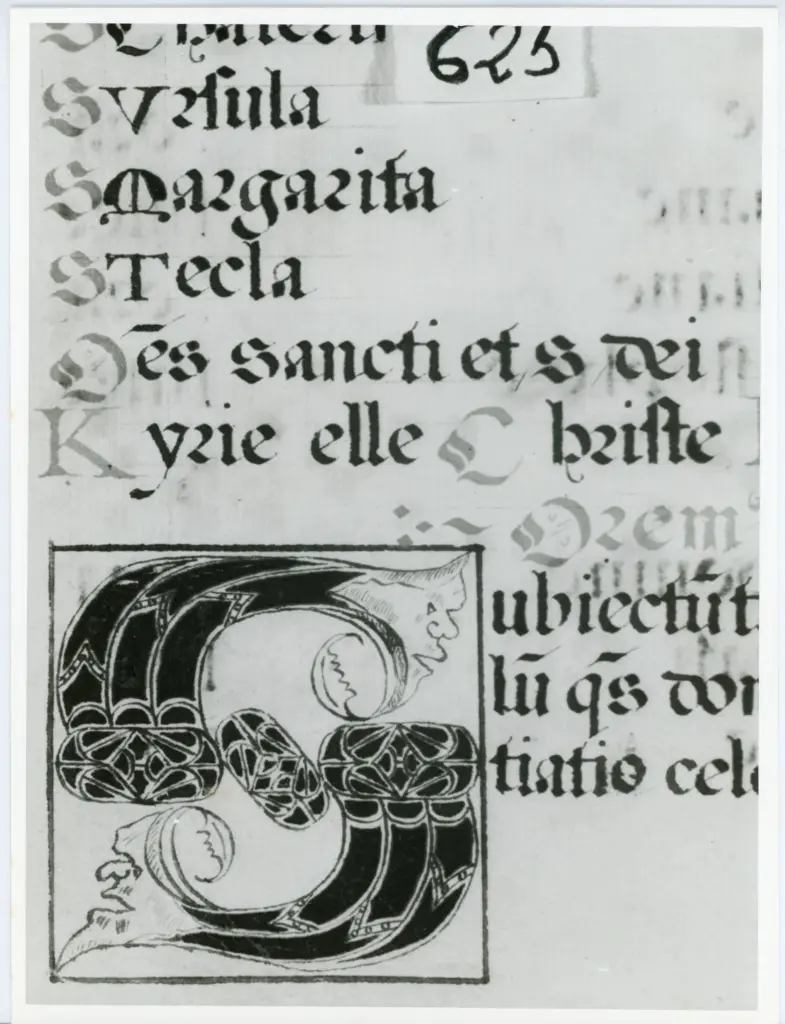 625
S Vrsula
S Margarita
S Tecla
Oēs sancti et s dei
Kyrie elle Christe
Orem
Subiectū t
lū q̄s don
tiatio cele